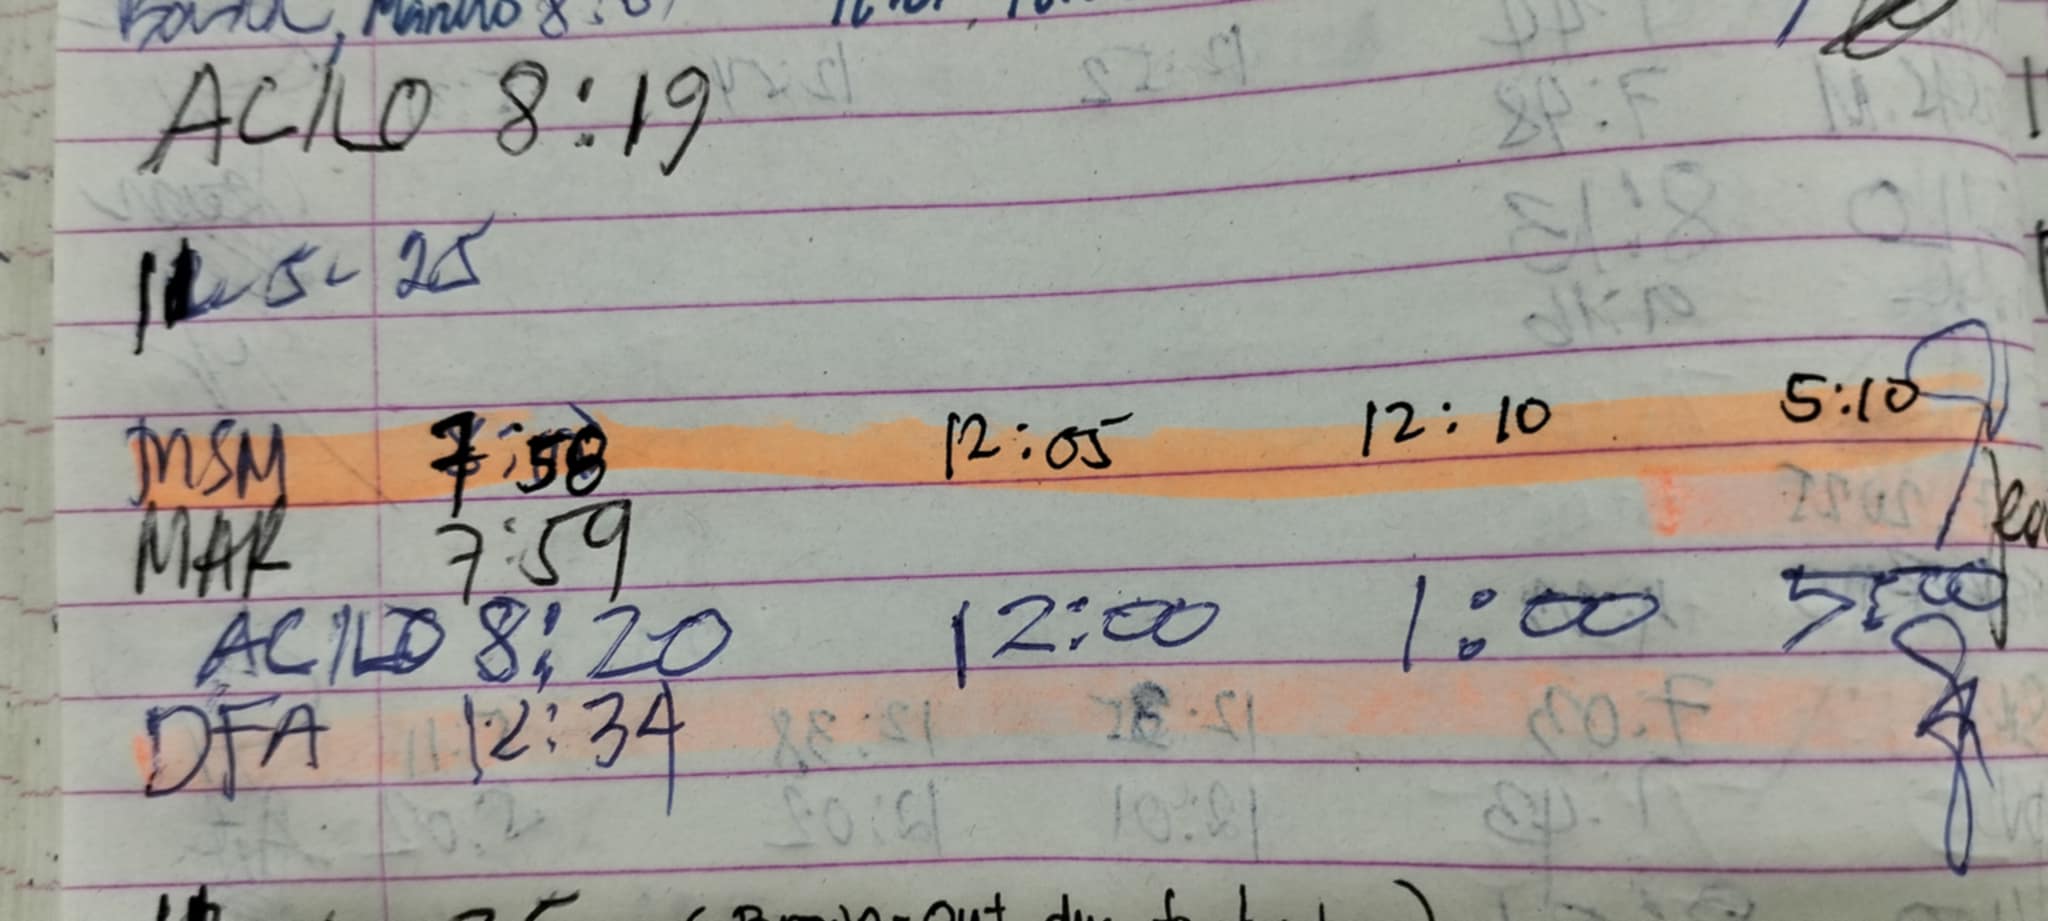 ACILO 8:19
11-5-25
MSM 7:58 12:05 12:10 5:10
MAR 7:59
ACILO 8:20 12:00 1:00 5:00
DFA 12:34